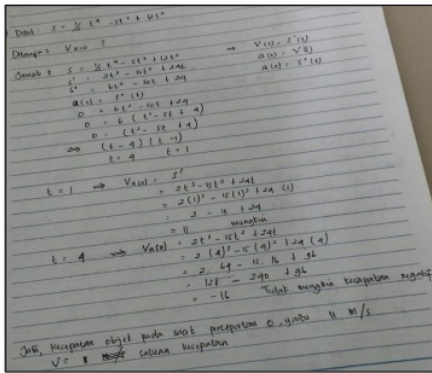 Diket : s = ½ t⁴ - 5t³ + 12t²
Ditanya : V a=0 ?
Jawab : s = ½ t⁴ - 5t³ + 12t² ⇒ V(t) = s'(t)
s' = 2t³ - 15t² + 24t a(t) = V'(t)
s" = 6t² - 30t + 24 a(t) = s"(t)
a(t) = s"(t)
0 = 6t² - 30t + 24
0 = 6 (t² - 5t + 4)
0 = (t² - 5t + 4)
⇔ (t - 4) (t - 1)
t = 4 t = 1
t = 1 ⇒ Va(0) = s'
= 2t³ - 15t² + 24t
= 2(1)³ - 15(1)² + 24 (1)
= 2 - 15 + 24
= 11 mungkin
t = 4 ⇒ Va(0) = 2t³ - 15t² + 24t
= 2 (4)³ - 15 (4)² + 24 (4)
= 2 . 64 - 15 . 16 + 96
= 128 - 240 + 96
= -16 Tidak mungkin kecepatan negatif
Jadi, kecepatan objek pada saat percepatan 0, yaitu 11 m/s
V = satuan kecepatan